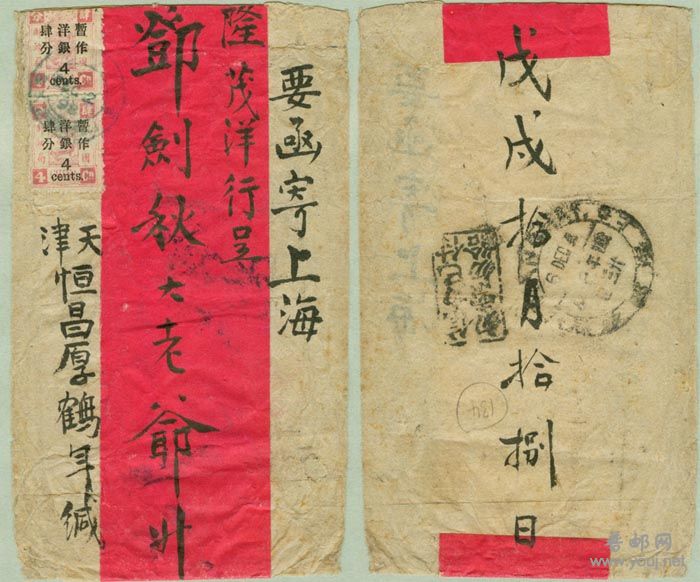 要函寄上海
隆茂洋行呈
鄧劍秋大老爺升
天津恒昌厚鶴年緘
暫作
洋銀
肆分
4
cents.
暫作
洋銀
肆分
4
cents.
4
戊戌拾月拾捌日
134
DEC
www.youj.net